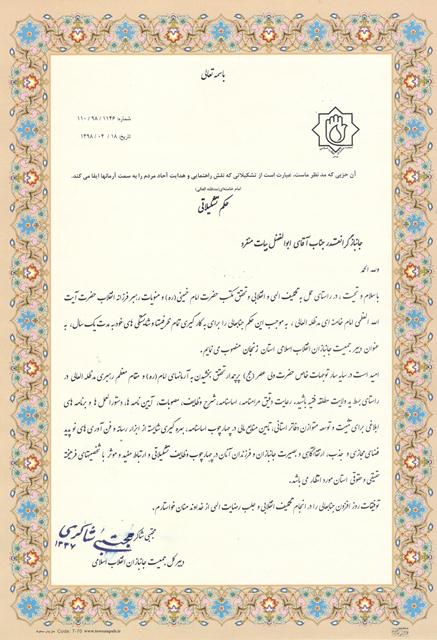 باسمه تعالی
شماره: ۱۱۴۶ / ۹۸ / ۱۱۰
تاریخ: ۱۸ / ۰۴ / ۱۳۹۸
آن حزبی که مد نظر ماست، عبارت است از تشکیلاتی که نقش راهنمایی و هدایت آحاد مردم را به سمت آرمانها ایفا می کند.
امام خامنه‌ای (مدظله العالی)
حکم تشکیلاتی
جانباز گرانقدر جناب آقای ابوالفضل بیات منفرد
وله الحمد
با سلام و تحیت، در راستای عمل به تکلیف الهی و انقلابی و تحقق مکتب حضرت امام خمینی (ره) و منویات رهبر فرزانه انقلاب حضرت آیت
الله العظمی امام خامنه ای مدظله العالی، به موجب این حکم جنابعالی را برای به کارگیری تمام ظرفیتها و شایستگی های خود به مدت یک سال، به
عنوان دبیر جمعیت جانبازان انقلاب اسلامی استان زنجان منصوب می نمایم.
امید است در سایه سار توجهات خاص حضرت ولی عصر (عج) پرچمدار تحقق بخشیدن به آرمانهای امام (ره) و مقام معظم رهبری مدظله العالی در
راستای بسط به ولایت مطلقه فقیه باشید. رعایت دقیق مرامنامه، اساسنامه، شرح وظایف، مصوبات، آیین نامه ها، دستورالعمل ها و برنامه های
ابلاغی برای تثبیت و توسعه متوازن دفاتر استانی، تامین منابع مالی در چهارچوب اساسنامه، بهره گیری شایسته از ابزار رسانه و فن آوری های نو پدید
فضای مجازی و جذب، ارتقا آگاهی و بصیرت جانبازان و فرزندان آنان در چهارچوب وظایف تشکیلاتی و ارتباط مفید و موثر با شخصیتهای فرهیخته
حقیقی و حقوقی استان مورد انتظار می باشد.
توفیقات روز افزون جنابعالی را در انجام تکلیف انقلابی و جلب رضایت الهی از خداوند منان خواستارم.
مجتبی شاکری
دبیر کل جمعیت جانبازان انقلاب اسلامی
Code: T-70 www.tooseaspah.ir